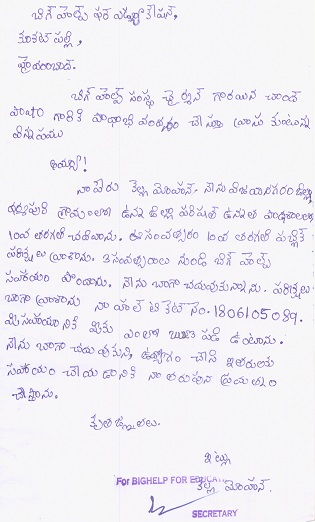 బిగ్ హెల్ప్ ఫర్ ఎడ్యుకేషన్,
కూకట్ పల్లి,
హైదరాబాద్.
బిగ్ హెల్ప్ సంస్థ ఛైర్మన్ గారయిన చాంద్
పాషా గారికి పాదాభి వందనం చేస్తూ వ్రాసు కుంటున్న
విన్నపము
అయ్యా!
నా పేరు కెల్ల మోహన్. నేను విజయనగరం జిల్లా,
ధర్మపురి గ్రామంలో ఉన్న జిల్లా పరిషత్ ఉన్నత పాఠశాలలో
10వ తరగతి చదివాను. ఈ సంవత్సరం 10వ తరగతి పబ్లిక్
పరీక్షలు వ్రాశాను. 3 సంవత్సరాలు నుండి బిగ్ హెల్ప్
సహాయం పొందాను. నేను బాగా చదువుకున్నాను. పరీక్షలు
బాగా వ్రాశాను నా హాల్ టికెట్ నెం. 1806105089.
మీ సహాయానికి మీకు ఎంతో ఋణ పడి ఉంటాను.
నేను బాగా చదువుకుని, ఉద్యోగం చేసి ఇతరులకు
సహాయం చేయడానికి నా తరుపున ప్రయత్నం
చేస్తాను.
కృతజ్ఞతలు.
ఇట్లు
For BIGHELP FOR EDUCATION
కెల్ల మోహన్.
SECRETARY